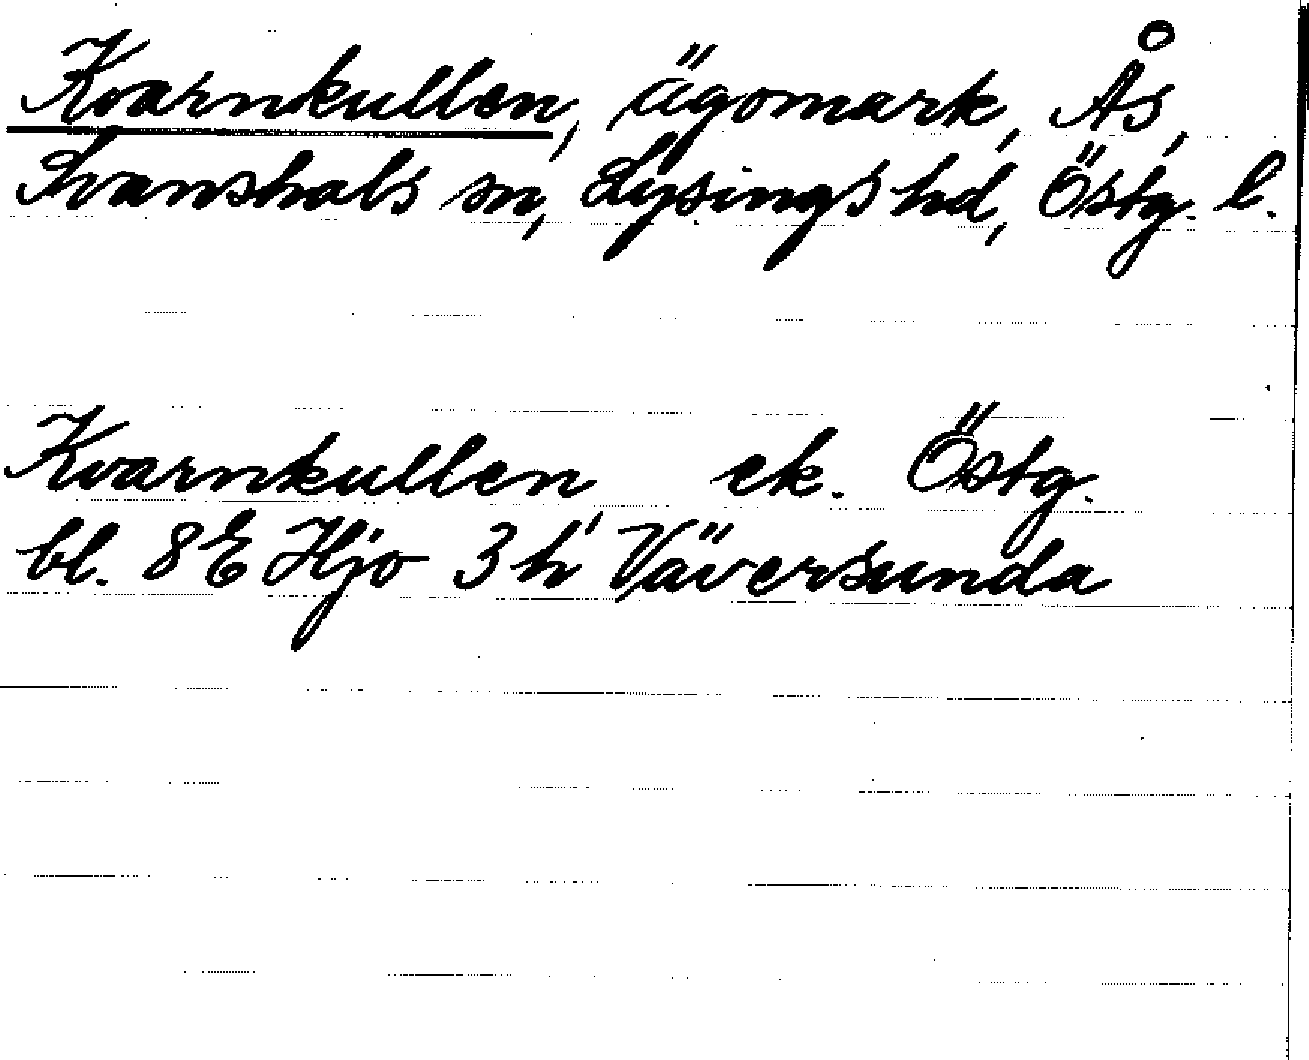 Kvarnkullen, ägomark, Ås,
Svanshals sn, Lysings hd, Östg. l.
Kvarnkullen ek. Östg.
bl. 8E Hjo 3h Väversunda